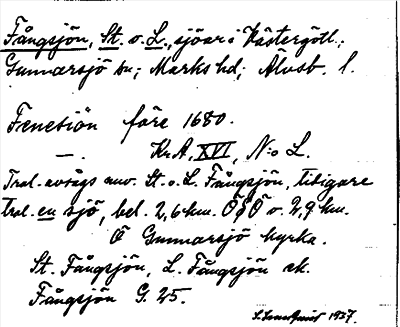 Fångsjön, St. o. L., sjöar i Västergötl.;
Gunnarsjö sn; Marks hd; Älvsb. l.
Fenesiön före 1680.
—. Kr.A, XVI, N:o L.
Trol. avsågs omr. St. o. L. Fångsjön, tidigare
trol. en sjö, bel. 2,6 km. ÖSÖ o. 2,9 km.
Ö Gunnarsjö kyrka.
St. Fångsjön, L. Fångsjön ek.
Fångsjön G. 25.
1937.